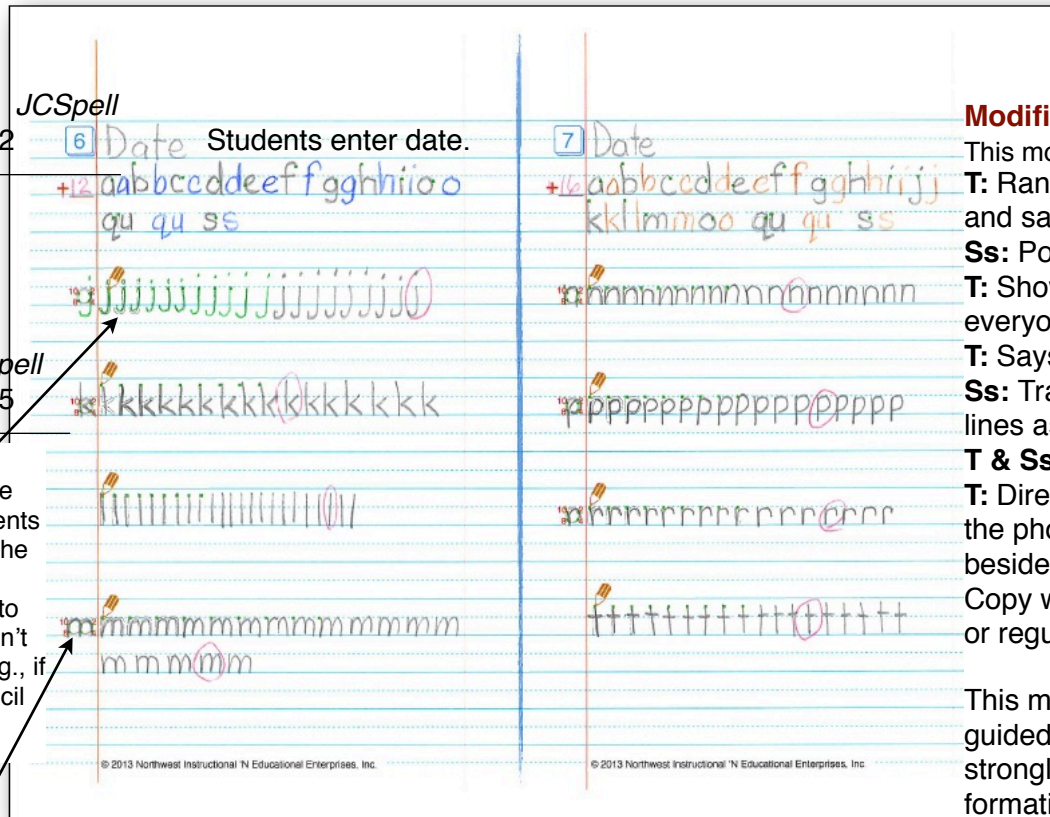 JCSpell
2
pell
5
e
ents
he
to
n't
g., if
cil
6 Date Students enter date.
+12 aabbccddeeffgghhiioo
qu qu ss
jjjjjjjjjjjjjjjjjjj
kkkkkkkkkkkkkkkkk
lllllllllllllllllllll
mmmmmmmmmmmmmm
mmmmm
© 2013 Northwest Instructional 'N Educational Enterprises, Inc.
7 Date
+16 aabbccddeeffgghhiijj
kkllmmoo qu qu ss
nnnnnnnnnnnnnnnnnnn
pppppppppppppppppp
rrrrrrrrrrrrrrrr
tttttttttttttttt
© 2013 Northwest Instructional 'N Educational Enterprises, Inc
Modifi
This mo
T: Ran
and sa
Ss: Po
T: Show
everyo
T: Says
Ss: Tra
lines as
T & Ss
T: Dire
the pho
beside
Copy w
or regu
This m
guided
strongl
formati